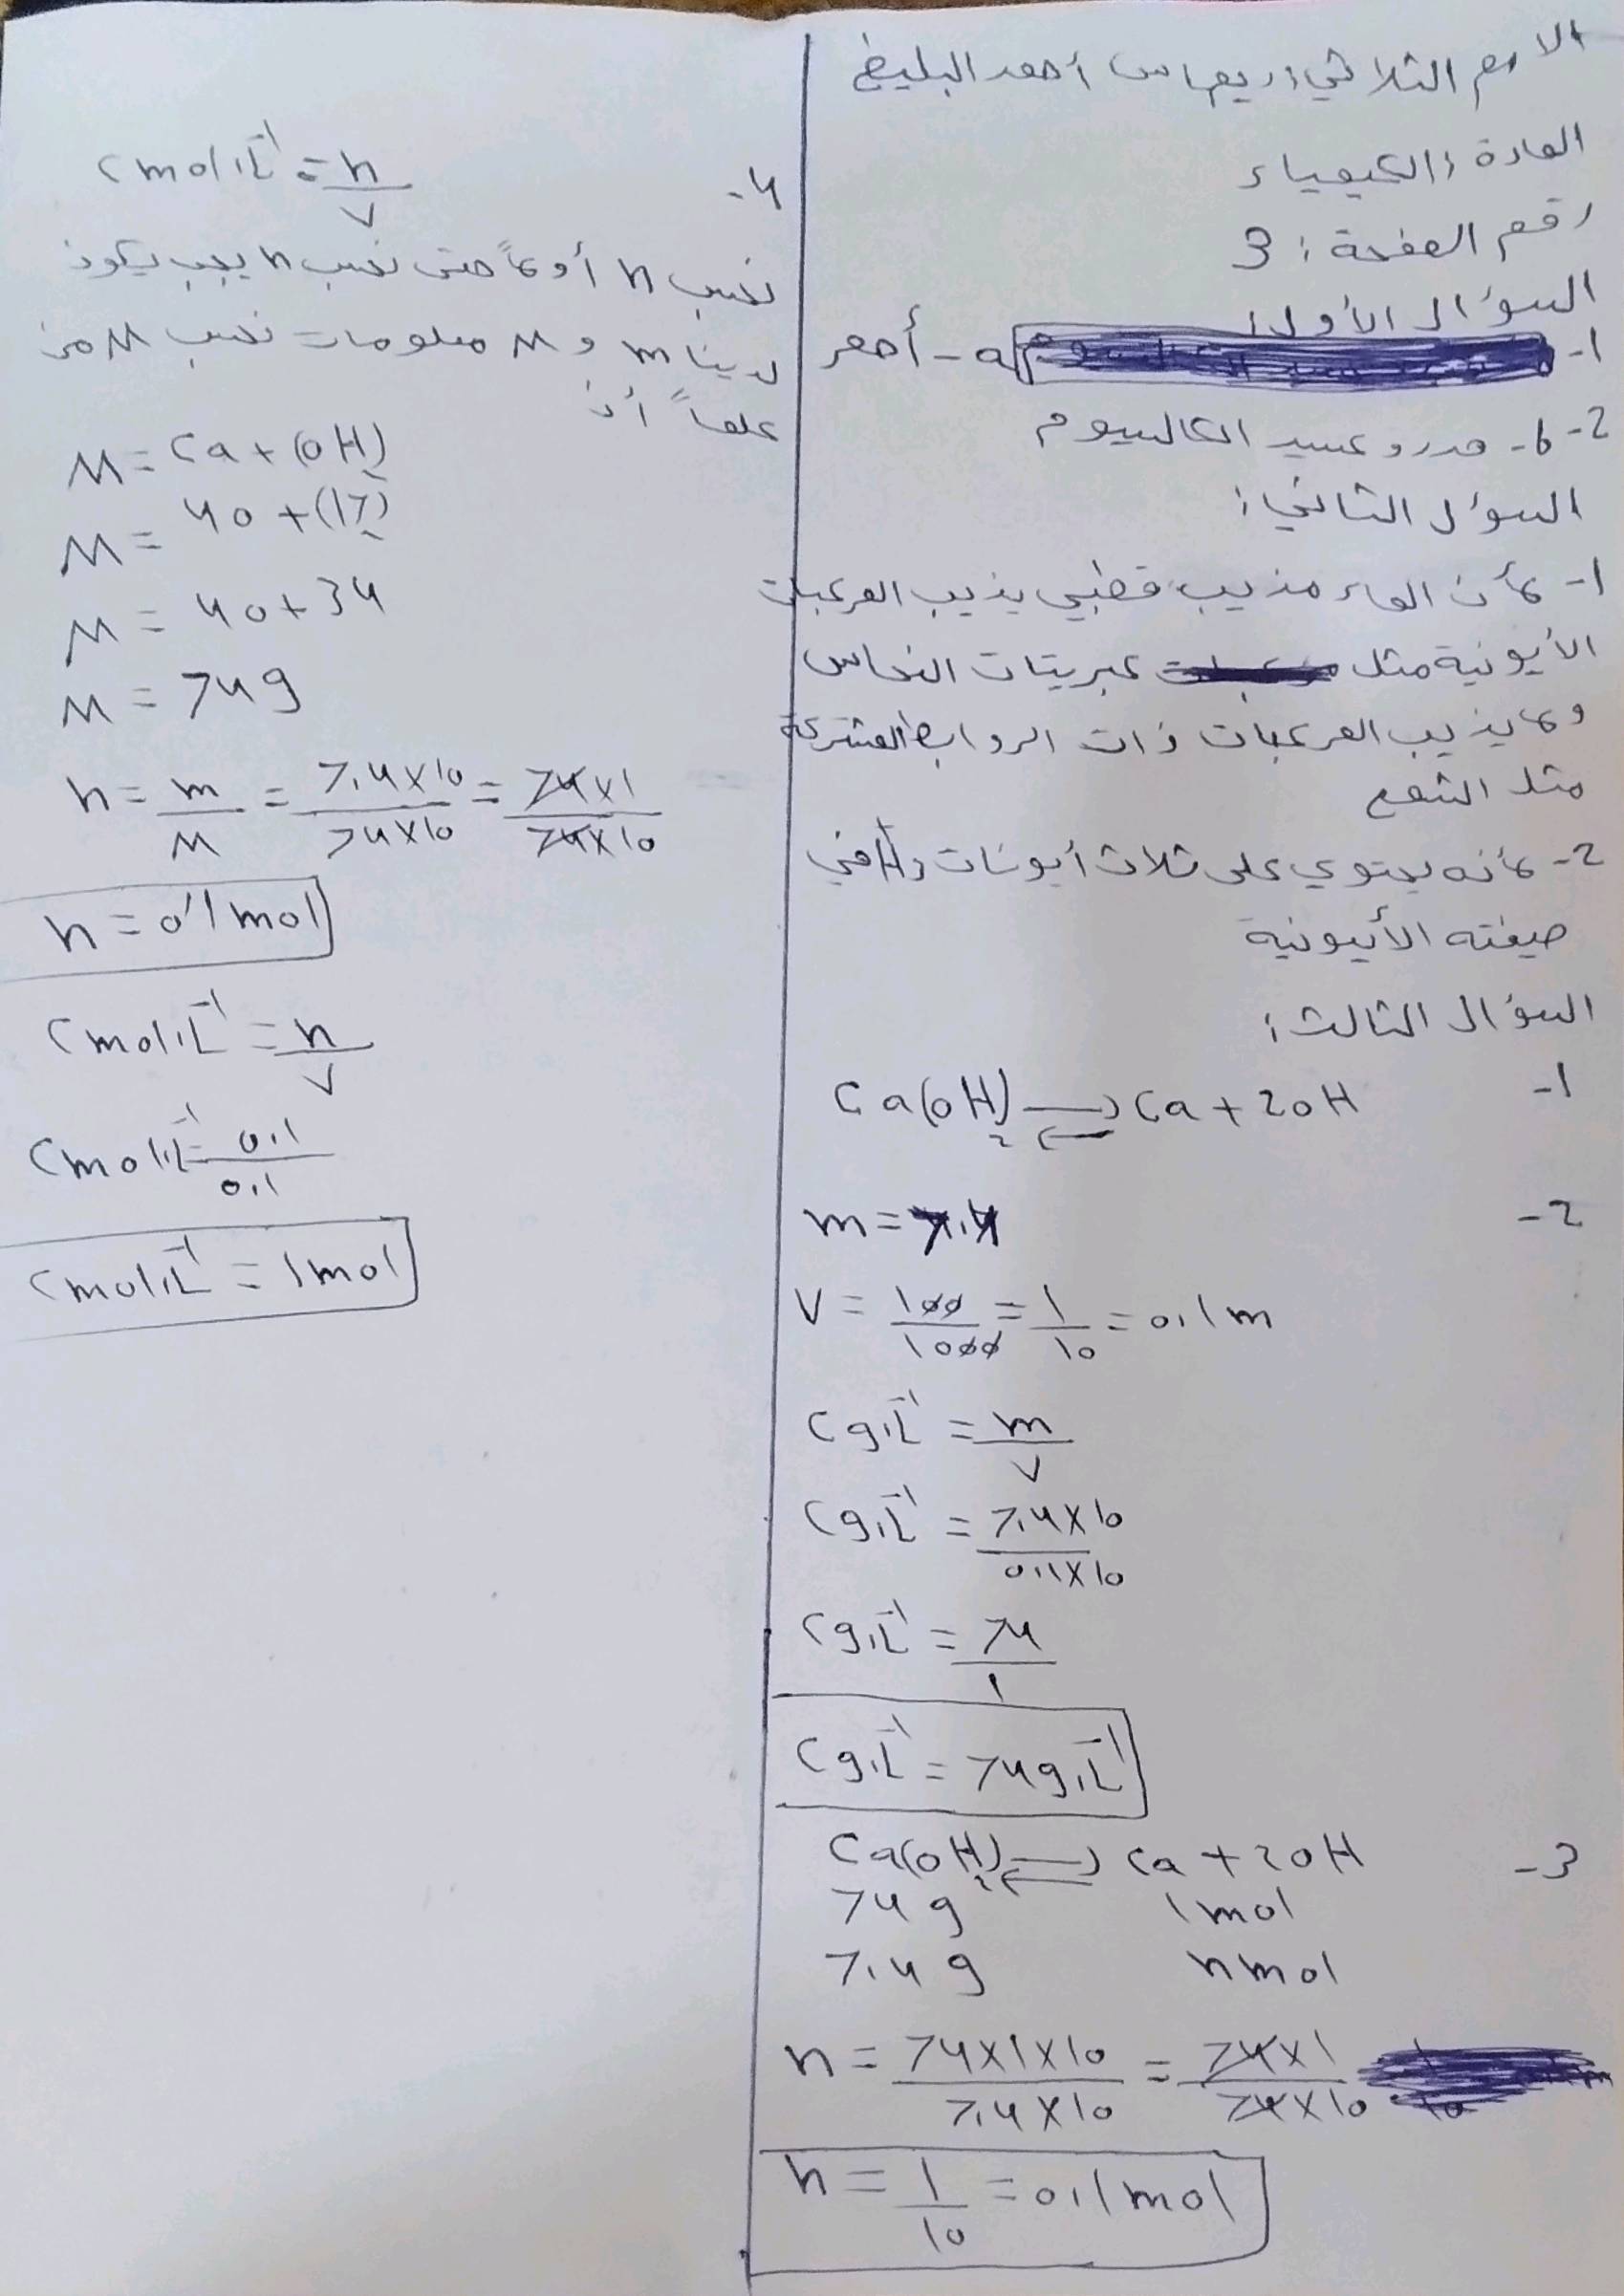 الاسم الثلاثي: ريماس أحمد البليخ
المادة: الكيمياء
رقم الصفحة: 3
السؤال الأول:
1- a- أحمر
2- b- هدروكسيد الكالسيوم
السؤال الثاني:
1- لأن الماء مذيب قطبي يذيب المركبات
الأيونية مثل كبريتات النحاس
ولا يذيب المركبات ذات الروابط المشتركة
مثل الشمع
2- لأنه يحتوي على ثلاث أيونات H في
صيغته الأيونية
السؤال الثالث:
1- Ca(OH)₂ ⇌ Ca + 2OH
2- m = 7.4
V = 100/1000 = 1/10 = 0.1m
Cg.L⁻¹ = m/V
Cg.L⁻¹ = 7.4×10/0.1×10
Cg.L⁻¹ = 74/1
Cg.L⁻¹ = 74g.L⁻¹
3- Ca(OH)₂ ⇌ Ca + 2OH
74g 1mol
7.4g nmol
n = 74×1×10/7.4×10 = 74×1/74×10
n = 1/10 = 0.1mol
4- Cmol.L⁻¹ = n/V
نحسب n أولاً حتى نحسب n يجب يكون
لدينا m و M معلومات نحسب M من
علماً أن
M = Ca + (OH)₂
M = 40 + (17)₂
M = 40 + 34
M = 74g
n = m/M = 7.4×10/74×10 = 74×1/74×10
n = 0.1mol
Cmol.L⁻¹ = n/V
Cmol.L⁻¹ = 0.1/0.1
Cmol.L⁻¹ = 1mol